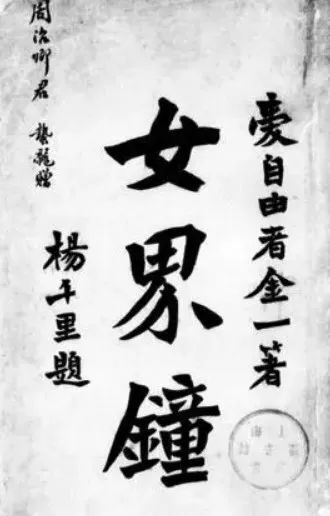 愛自由者金一著
女界鐘
楊千里題
周治卿君 龍贈